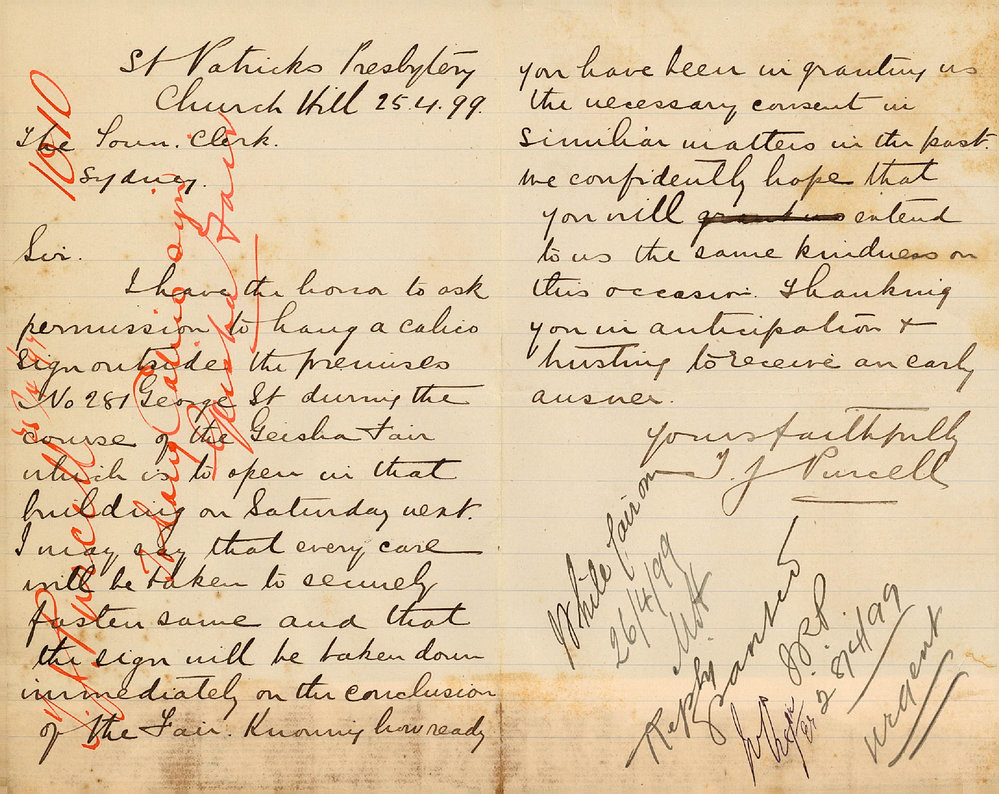 St Patricks Presbytery
Church Hill 25.4.99.
The Town. Clerk.
Sydney.
Sir.
I have the honor to ask
permission to hang a calico
sign outside the premises
No 281 George St during the
course of the Geisha Fair
which is to open in that
building on Saturday next.
I may say that every care
will be taken to securely
fasten same and that
the sign will be taken down
immediately on the conclusion
of the Fair. Knowing how ready
you have been in granting us
the necessary consent in
similiar matters in the past.
we confidently hope that
you will grant us extend
to us the same kindness on
this occasion. Thanking
you in anticipation &
trusting to receive an early
answer.
Yours faithfully
T. J Purcell
1010
T J Purcell
To Hang Calico sign
Geisha Fair
While fair on
26/4/99
Reply
granted
28/4/99
urgent